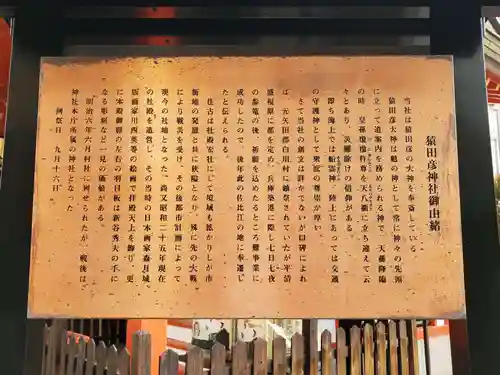 猿田彦神社御由緒
当社は猿田彦の大神を奉斎している
猿田彦大神は魁の神として常に神々の先頭
に立って道案内を務められる神で 天孫降臨
の時 皇孫瓊瓊杵尊が天八衢に立ち迷えて云
々とあり 災難除けの信仰がある
即ち海上では船霊神 陸上にあっては交通
の守護神として衆庶の尊崇が厚い
さて当社の創文は詳かでないが口碑によれ
ば 元矢田部白川村に鎮祭されていたが平清
盛福原に都を定め 兵庫築港に際し七日七夜
の参篭の後 祈願を込めたるところ難事業に
成功したので 後年此の佐比江の地に奉還し
たと伝えられる
往古は社殿宏壮にして境域も拡かりしが市
街地の発展と共に狭隘となり 殊に先の大戦
により戦災を受け その後都市計画によって
現今の社地となった 尚又昭和二十五年現在
の社殿を造営し その当時の日本画家森月城
版画家川西英等の絵画で拝殿天上を飾り 更
に本殿御扉の左右の羽目板は新谷秀夫の手に
なる彫刻など 一見の価値がある
明治六年六月村社に列せられたが 戦後は
神社本庁所属の神社となった
例祭日 九月十六日